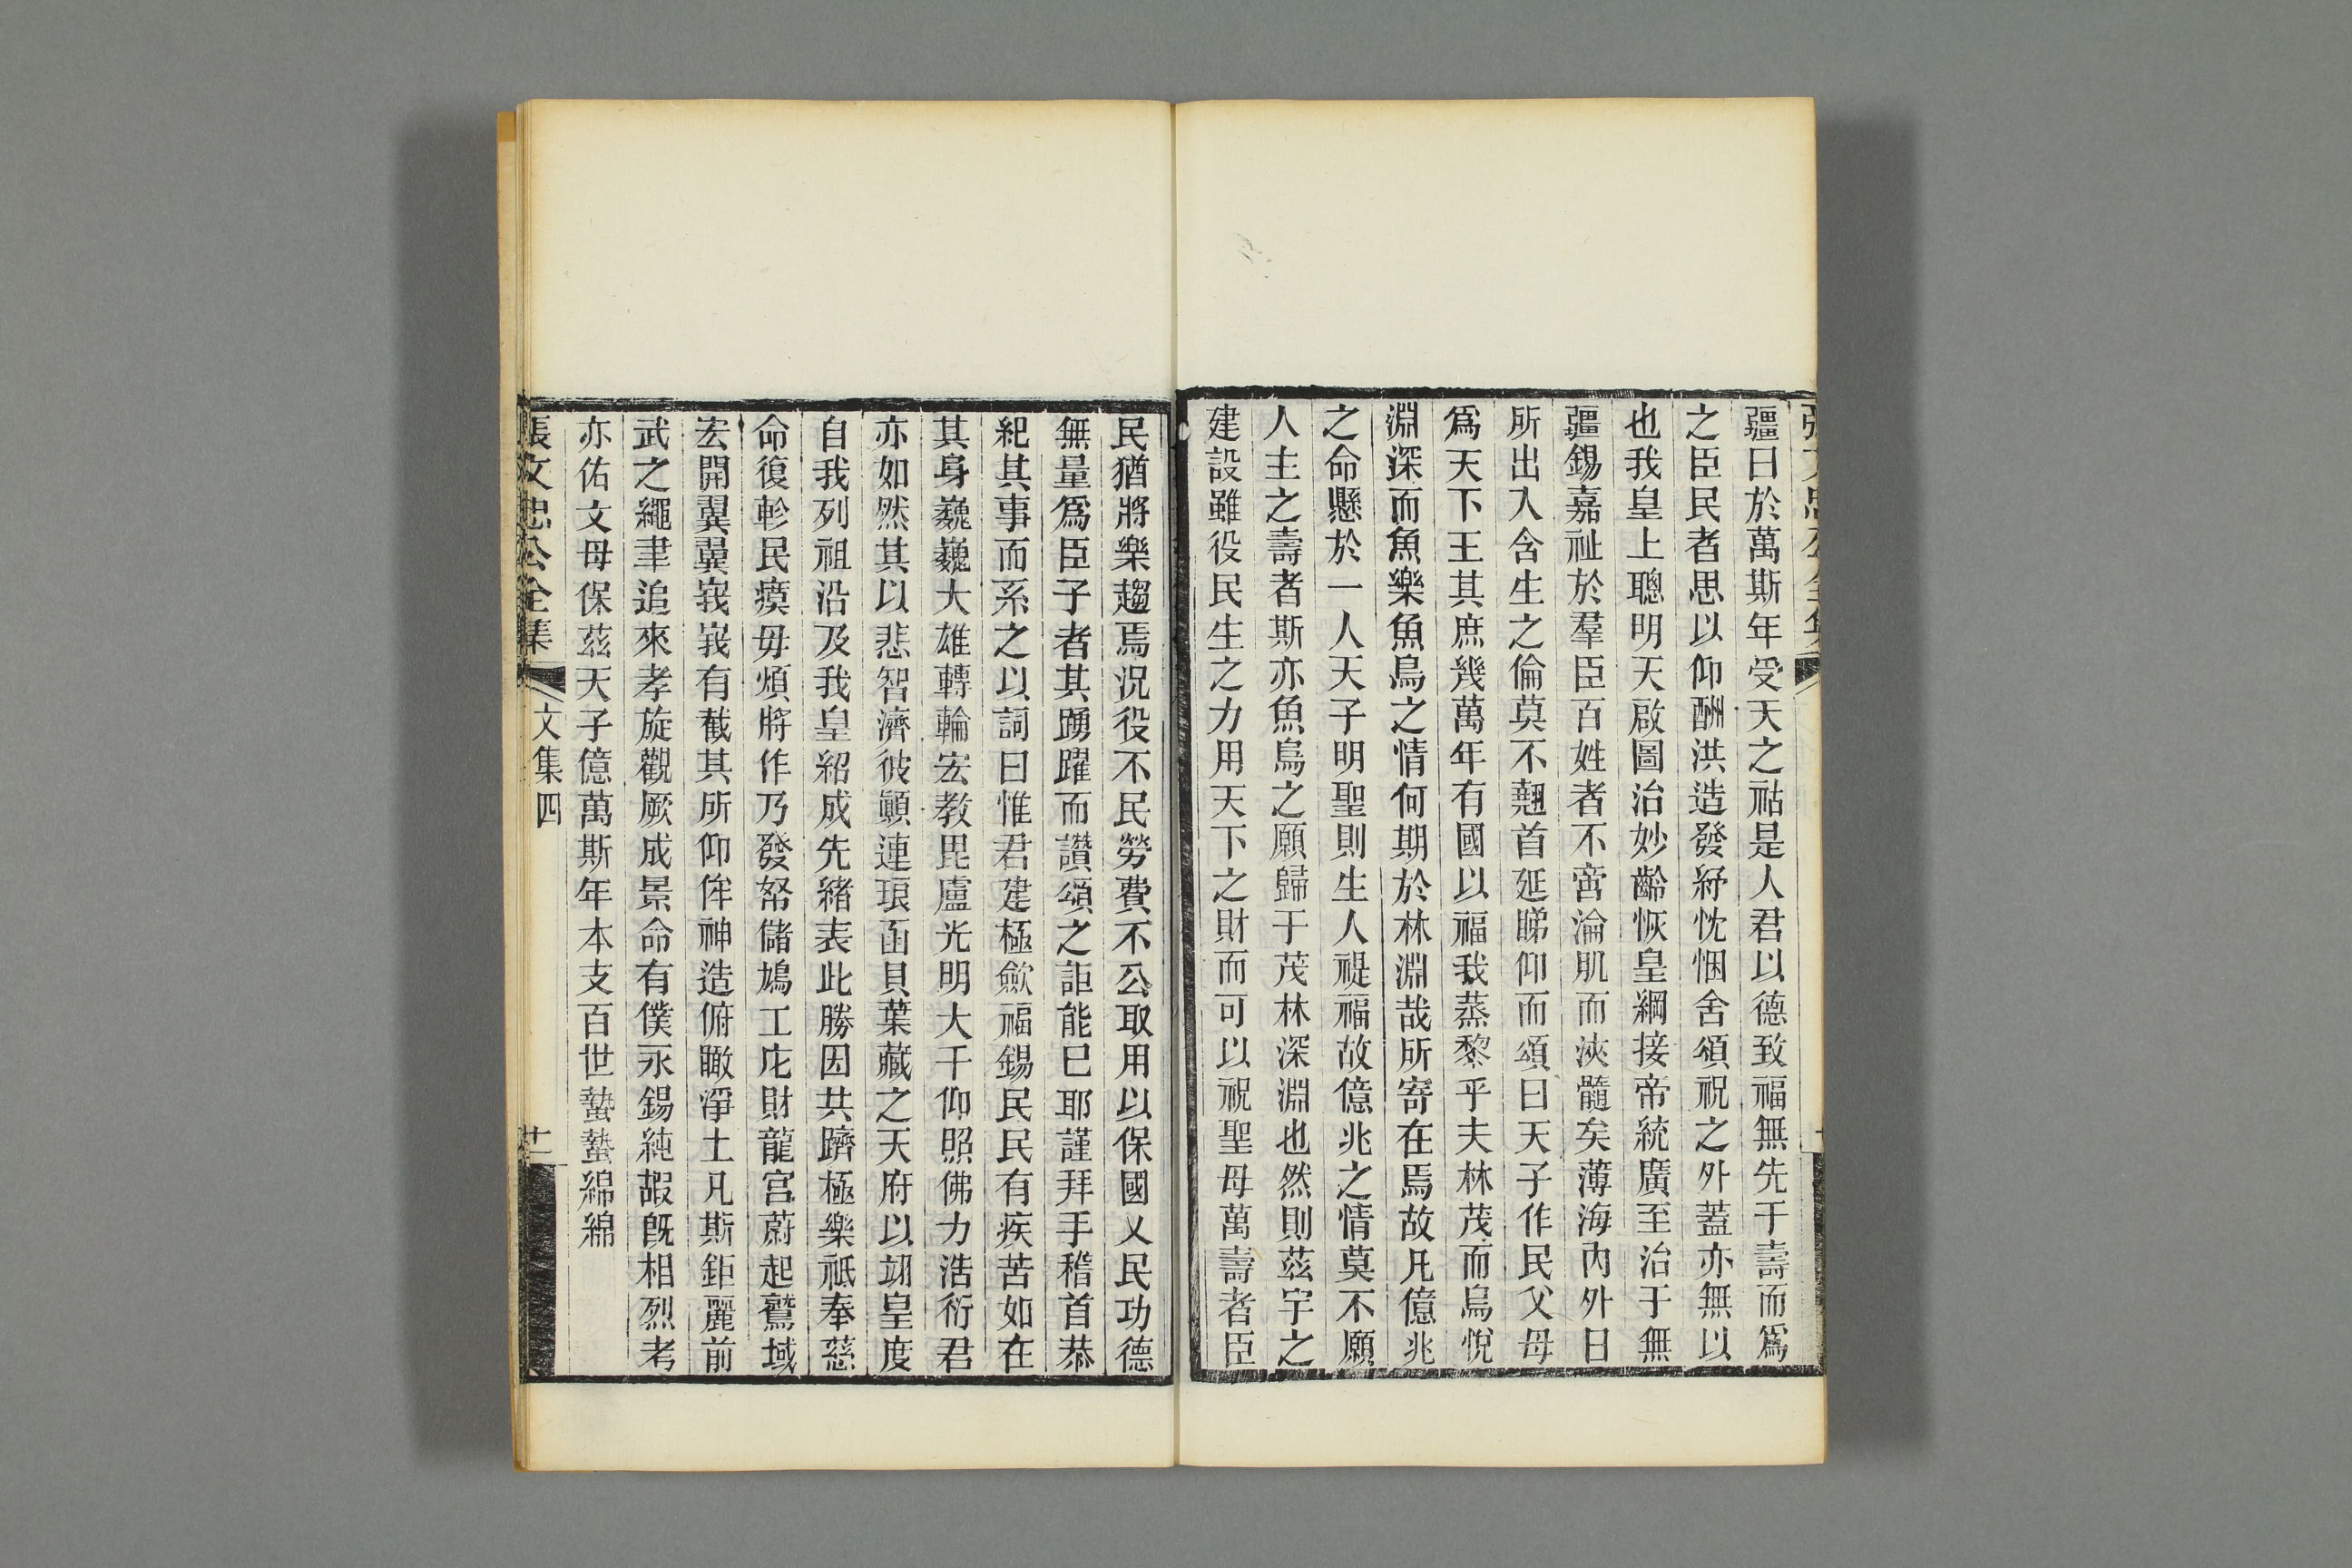 疆曰於萬斯年受天之祜是人君以德致福無先于壽而爲
之臣民者思以仰酬洪造發紓忱悃舍頌祝之外蓋亦無以
也我皇上聰明天啟圖治妙齡恢皇綱接帝統廣至治于無
疆錫嘉祉於羣臣百姓者不啻淪肌而浹髓矣薄海內外日
所出入含生之倫莫不翹首延睇仰而頌曰天子作民父母
爲天下王其庶幾萬年有國以福我蒸黎乎夫林茂而鳥悅
淵深而魚樂魚鳥之情何期於林淵哉所寄在焉故凡億兆
之命懸於一人天子明聖則生人禔福故億兆之情莫不願
人主之壽者斯亦魚鳥之願歸于茂林深淵也然則茲宇之
建設雖役民生之力用天下之財而可以祝聖母萬壽者臣
民猶將樂趨焉況役不民勞費不公取用以保國乂民功德
無量爲臣子者其踴躍而讚頌之詎能已耶謹拜手稽首恭
紀其事而系之以詞曰惟君建極歛福錫民民有疾苦如在
其身巍巍大雄轉輪宏教毘盧光明大千仰照佛力浩衍君
亦如然其以悲智濟彼顚連琅函貝葉藏之天府以翊皇度
自我列祖沿及我皇紹成先緒表此勝因共躋極樂祗奉慈
命復軫民瘼毋煩將作乃發帑儲鳩工庀財龍宮蔚起鷲域
宏開翼翼峩峩有截其所仰侔神造俯瞰凈土凡斯鉅麗前
武之繩聿追來孝旋觀厥成景命有僕永錫純嘏旣相烈考
亦佑文母保茲天子億萬斯年本支百世蟄蟄綿綿
張文忠公全集
文集四
十一